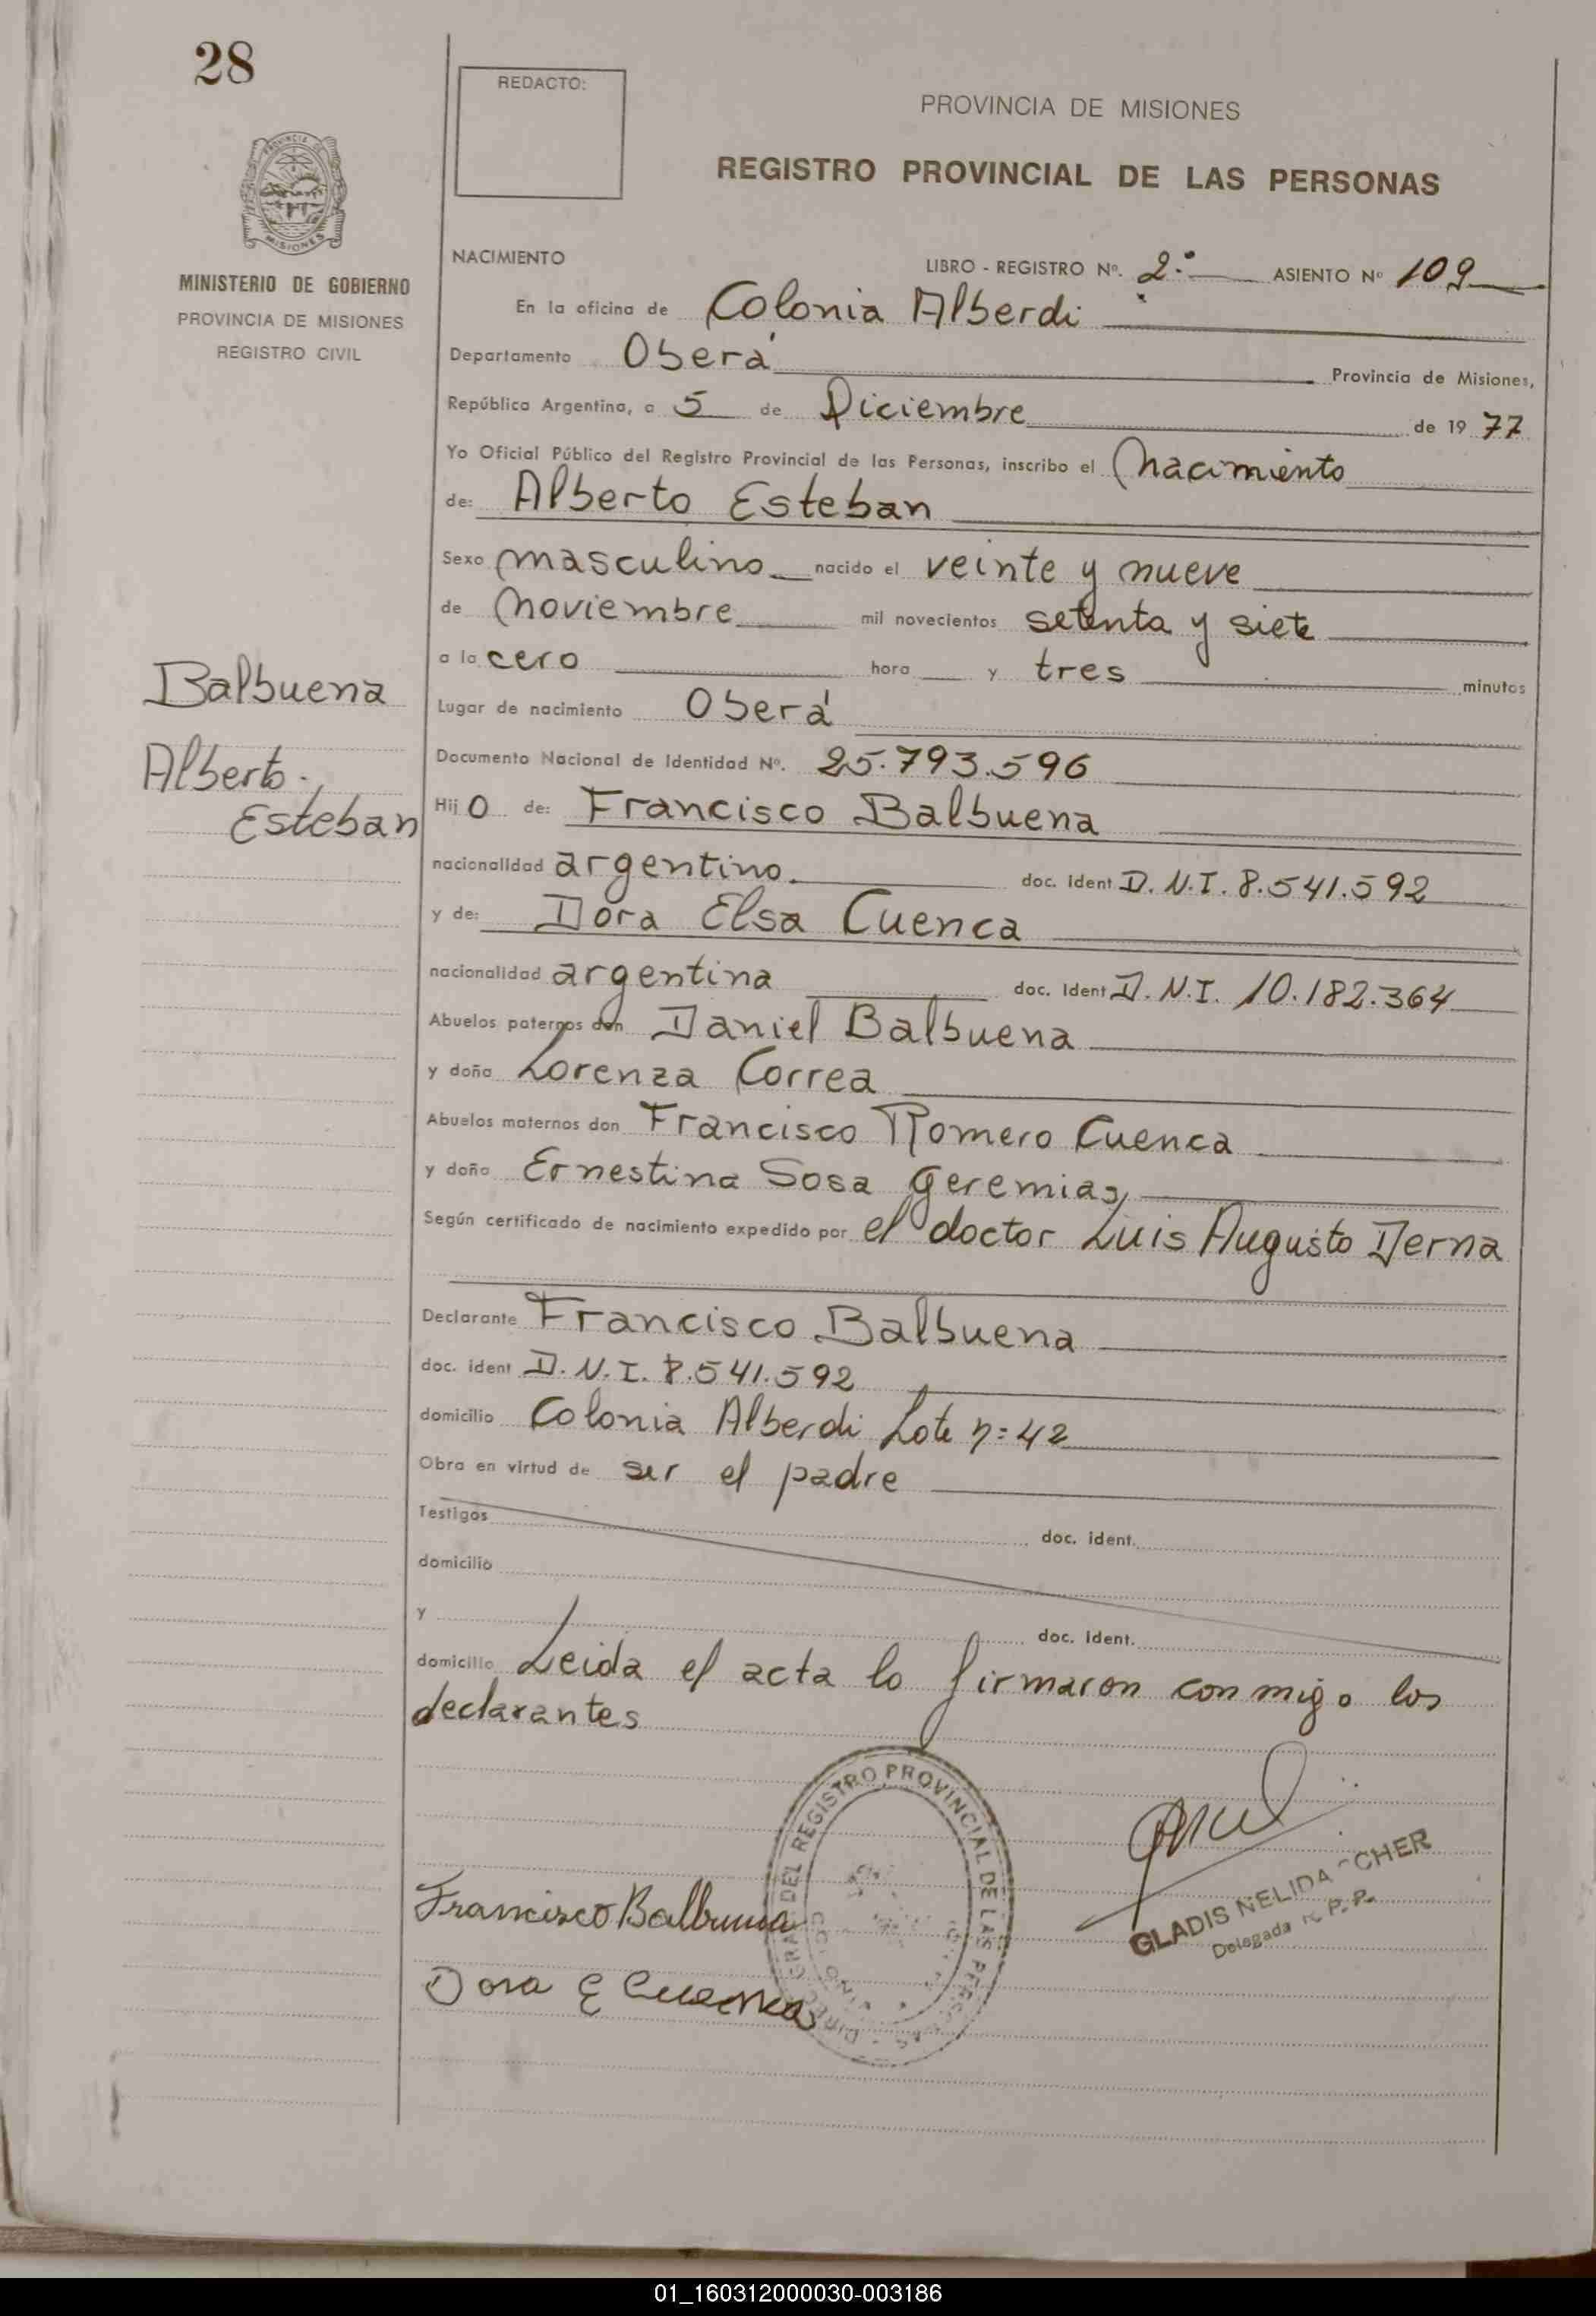 28
REDACTO:
PROVINCIA DE MISIONES
REGISTRO PROVINCIAL DE LAS PERSONAS
PROVINCIA DE
MISIONES
MINISTERIO DE GOBIERNO
PROVINCIA DE MISIONES
REGISTRO CIVIL
NACIMIENTO LIBRO - REGISTRO Nº. 2.º ASIENTO Nº 109
En la oficina de Colonia Alberdi
Departamento Oberá Provincia de Misiones,
República Argentina, a 5 de Diciembre de 1977
Yo Oficial Público del Registro Provincial de las Personas, inscribo el Nacimiento
de: Alberto Esteban
Sexo masculino nacido el veinte y nueve
de Noviembre mil novecientos setenta y siete
a la cero hora y tres minutos
Balbuena
Alberto.
Esteban
Lugar de nacimiento Oberá
Documento Nacional de Identidad Nº. 25.793.596
Hijo de: Francisco Balbuena
nacionalidad argentino doc. ident D.N.I. 8.541.592
y de: Dora Elsa Cuenca
nacionalidad argentina doc. ident D.N.I. 10.182.364
Abuelos paternos don Daniel Balbuena
y doña Lorenza Correa
Abuelos maternos don Francisco Romero Cuenca
y doña Ernestina Sosa Geremias
Según certificado de nacimiento expedido por el doctor Luis Augusto Derna
Declarante Francisco Balbuena
doc. ident D.N.I. 8.541.592
domicilio Colonia Alberdi Lote n= 42
Obra en virtud de ser el padre
Testigos doc. ident.
domicilio
y doc. ident.
domicilio Leida el acta lo firmaron conmigo los
declarantes
REGISTRO PROVINCIAL DE LAS PERSONAS
GLADIS NELIDA
Delegada R. P. P.
Francisco Balbuena
Dora E Cuenca
01_160312000030-003186